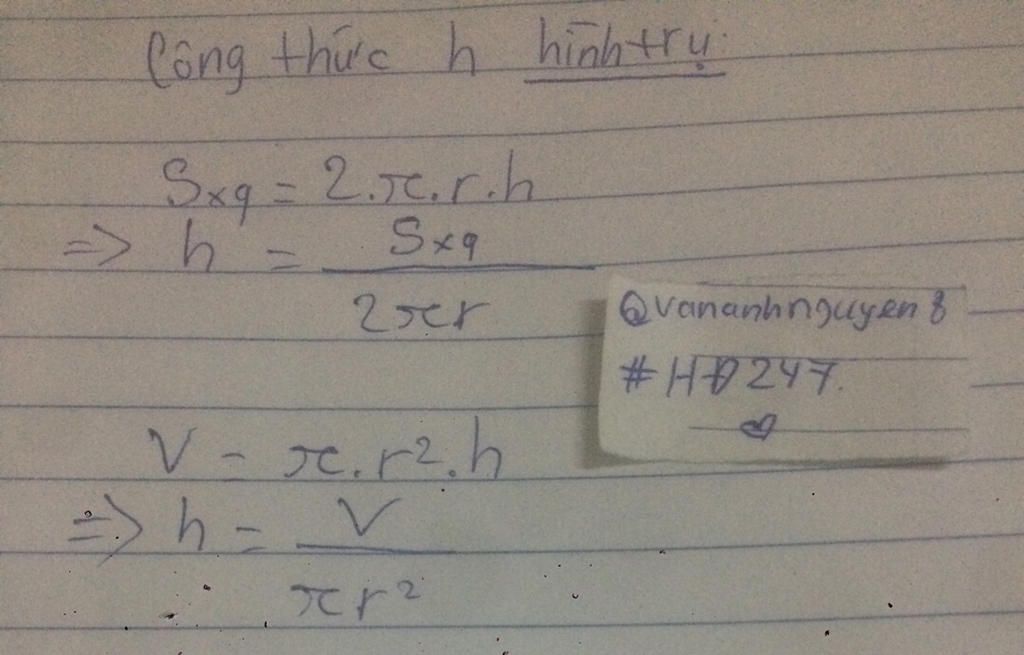 Công thức h hình trụ.
Sxq = 2.π.r.h
=> h = Sxq / 2πr
@vananhnguyen8
#HĐ247.
V = π.r².h
=> h = V / πr²